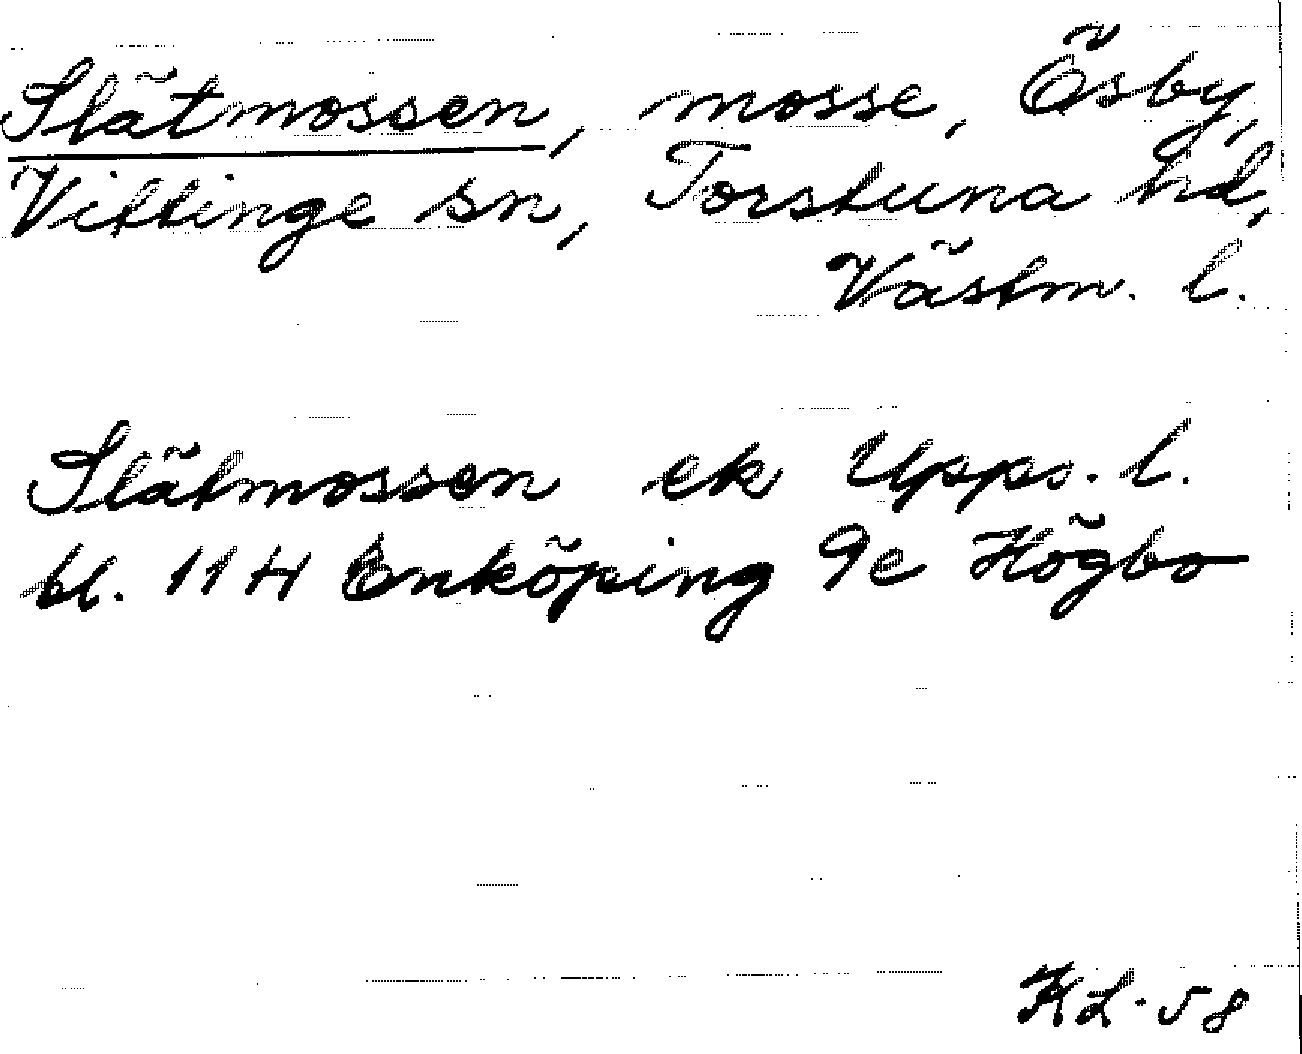 Slätmossen, mosse, Ösby,
Villinge sn, Torstuna hd,
Västm. l.
Slätmossen ek Upps. l.
bl. 11 H Enköping 9e Högbo
KL-58